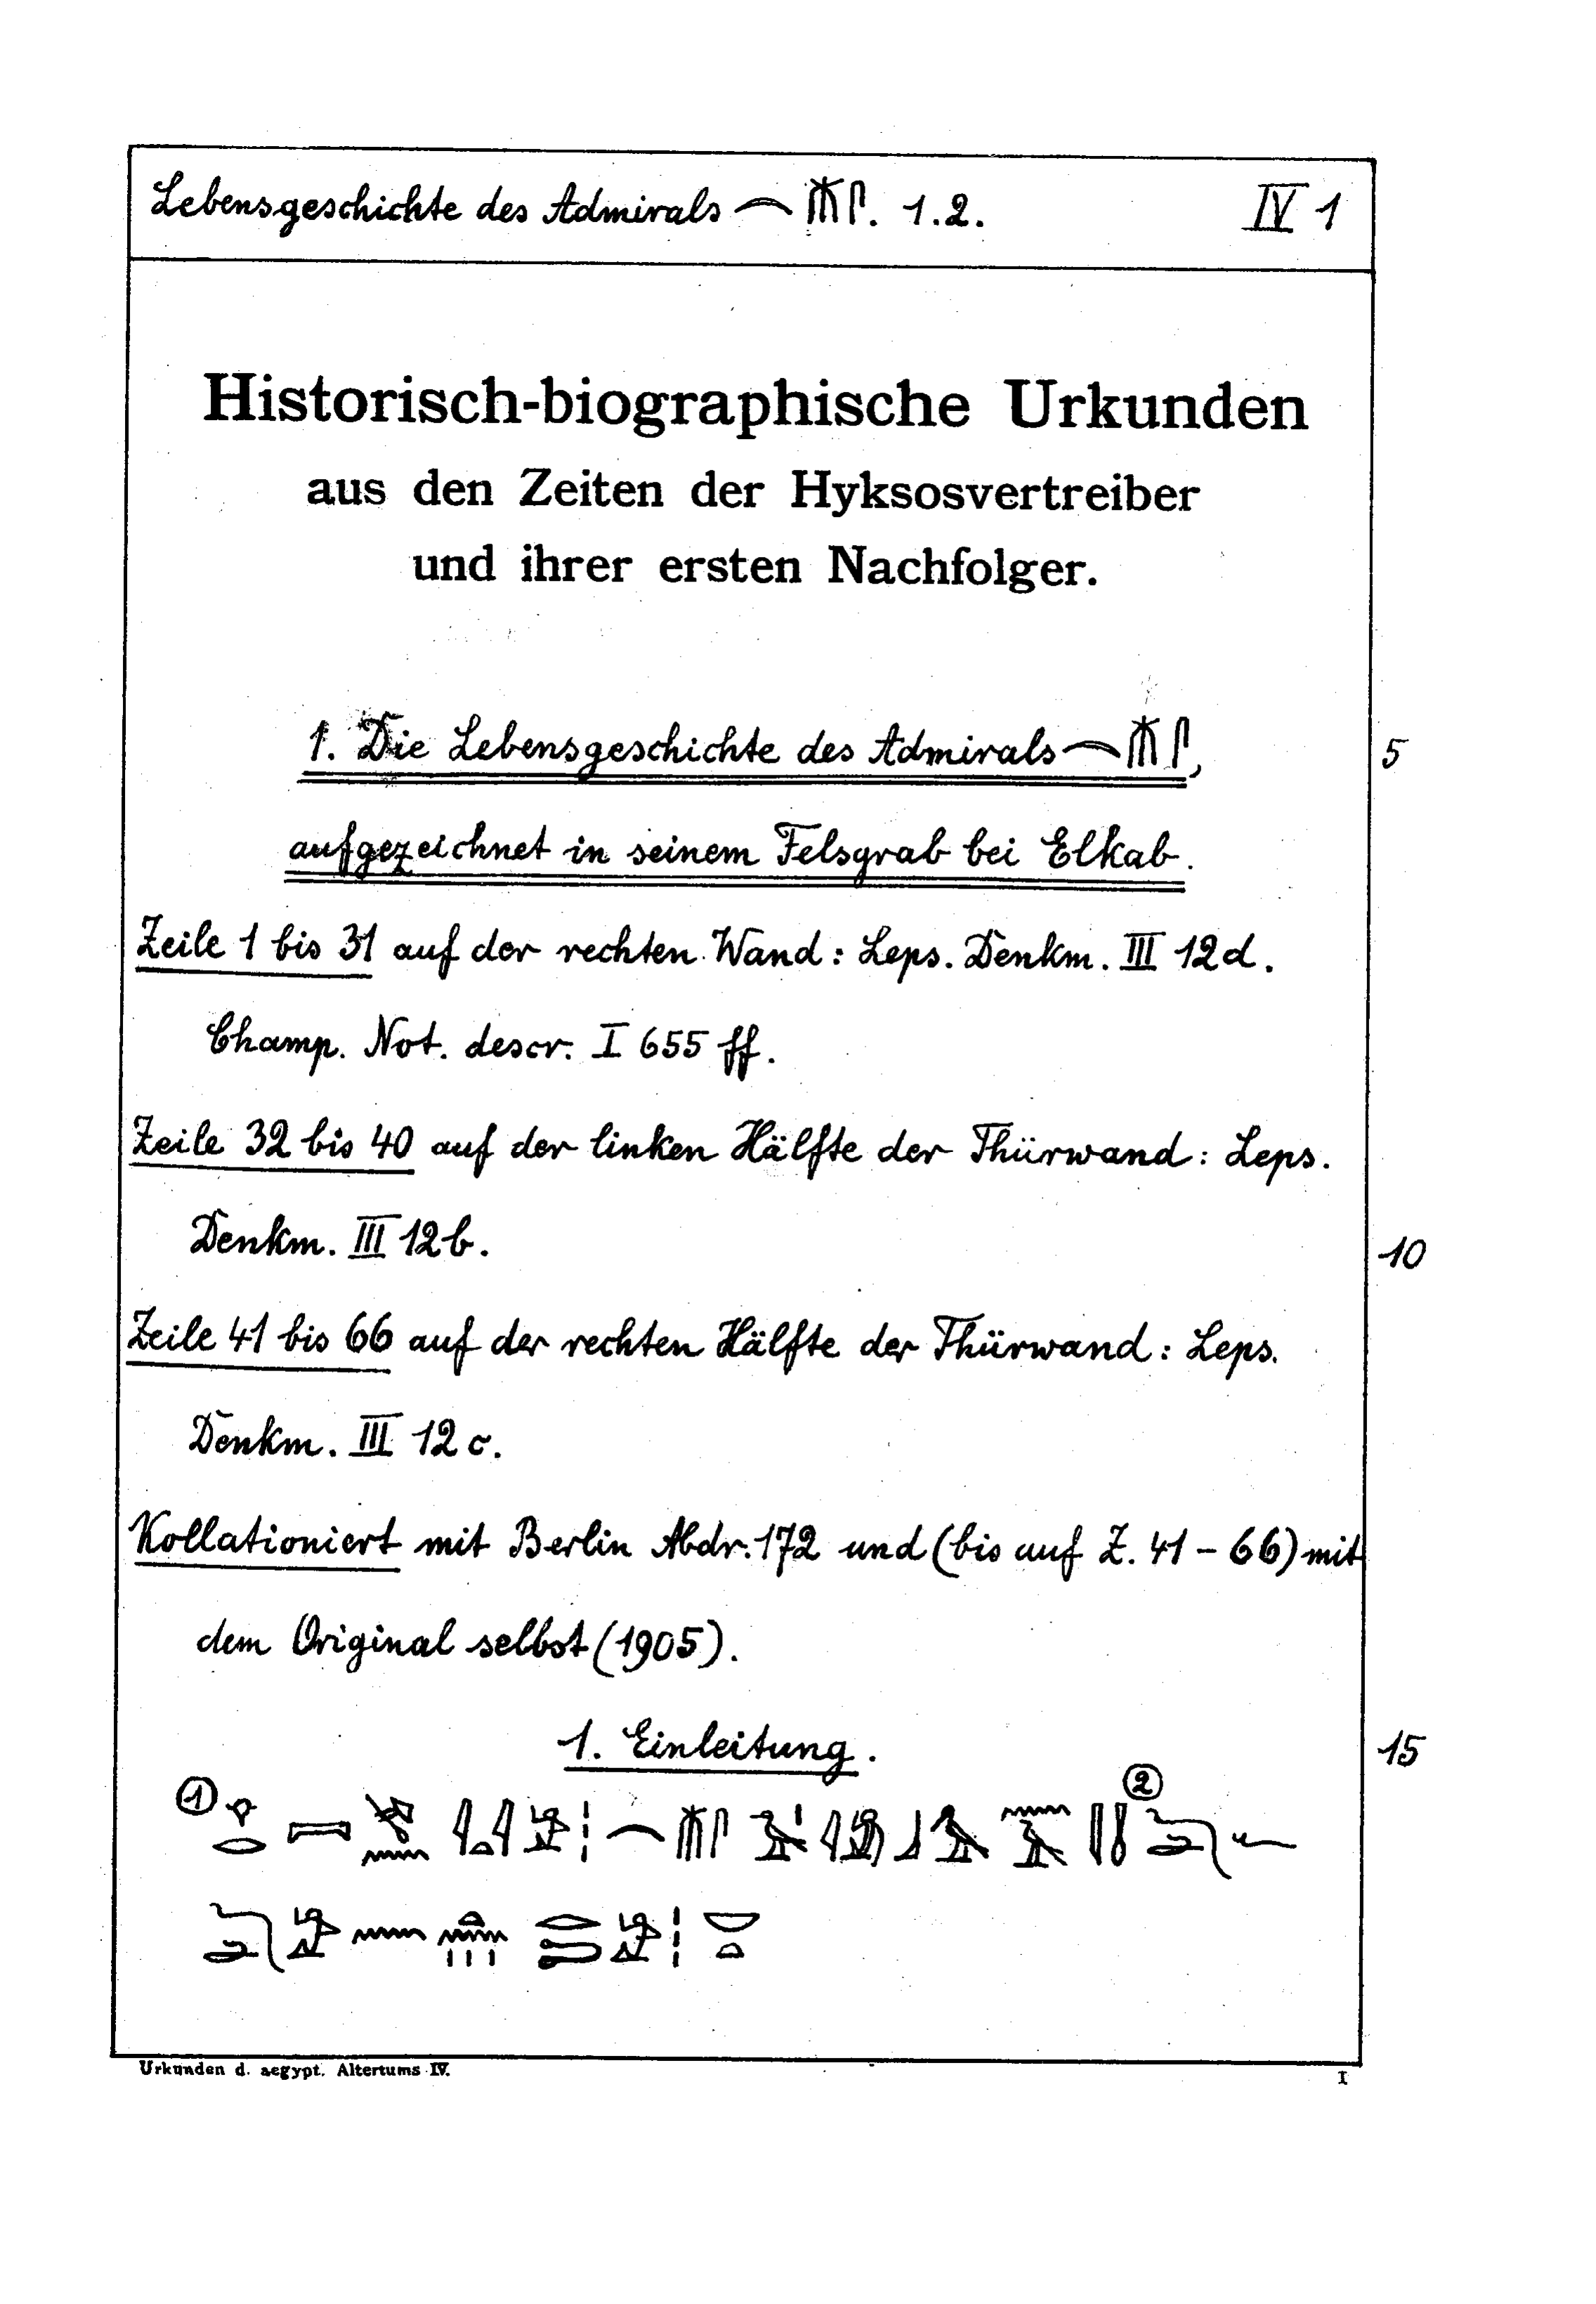 Lebensgeschichte des Admirals 𓇹𓄟𓋴. 1.2. IV 1
Historisch-biographische Urkunden
aus den Zeiten der Hyksosvertreiber
und ihrer ersten Nachfolger.
1. Die Lebensgeschichte des Admirals 𓇹𓄟𓋴, 5
aufgezeichnet in seinem Felsgrab bei Elkab.
Zeile 1 bis 31 auf der rechten Wand: Leps. Denkm. III 12d.
Champ. Not. descr. I 655 ff.
Zeile 32 bis 40 auf der linken Hälfte der Thürwand: Leps.
Denkm. III 12b. 10
Zeile 41 bis 66 auf der rechten Hälfte der Thürwand: Leps.
Denkm. III 12c.
Kollationiert mit Berlin Abdr. 172 und (bis auf Z. 41 – 66) mit
dem Original selbst (1905).
1. Einleitung. 15
① 𓁷𓂋 𓇹𓄟𓋴𓅭𓏤 ② 𓆓𓂧𓆑
𓆓𓂧𓀀𓈖𓏏𓈖𓏥𓂋𓍿𓀀𓏪𓎟𓏏
Urkunden d. aegypt. Altertums IV. I